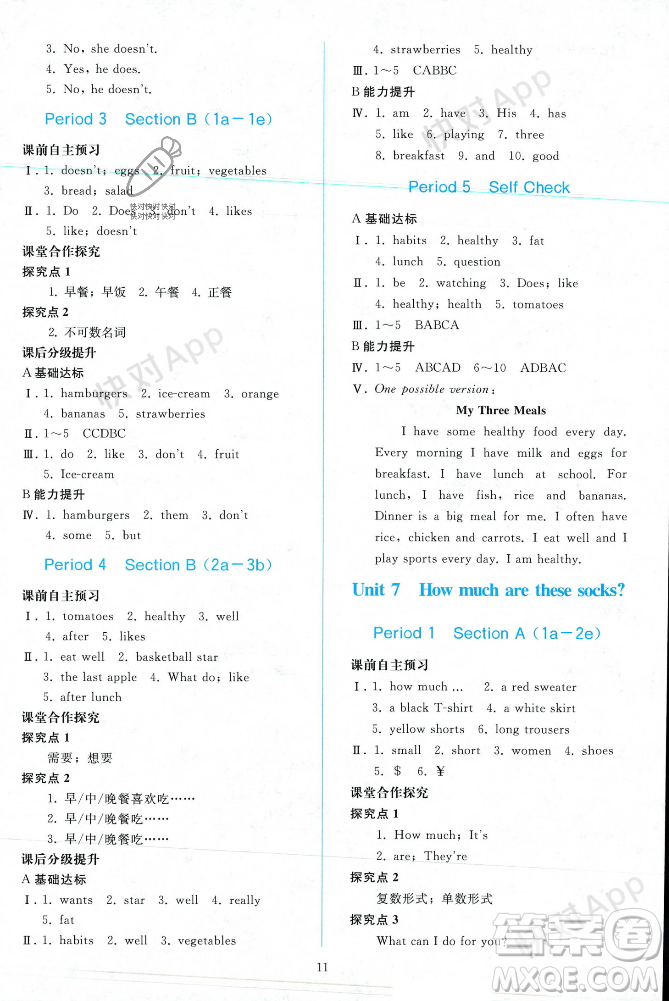 3. No, she doesn't.
4. Yes, he does.
5. No, he doesn't.
Period 3 Section B(1a-1e)
课前自主预习
Ⅰ. 1. doesn't; eggs 2. fruit; vegetables
3. bread; salad
Ⅱ. 1. Do 2. Does 3. don't 4. likes
5. like; doesn't
课堂合作探究
探究点 1
1. 早餐；早饭 2. 午餐 4. 正餐
探究点 2
2. 不可数名词
课后分级提升
A 基础达标
Ⅰ. 1. hamburgers 2. ice-cream 3. orange
4. bananas 5. strawberries
Ⅱ. 1~5 CCDBC
Ⅲ. 1. do 2. like 3. don't 4. like
5. Ice-cream
B 能力提升
Ⅳ. 1. hamburgers 2. them 3. don't
4. some 5. but
Period 4 Section B(2a-3b)
课前自主预习
Ⅰ. 1. tomatoes 2. healthy 3. well
4. after 5. likes
Ⅱ. 1. eat well 2. basketball star
3. the last apple 4. What do; like
5. after lunch
课堂合作探究
探究点 1
需要；想要
探究点 2
1. 早/中/晚餐喜欢吃……
2. 早/中/晚餐吃……
3. 早/中/晚餐吃……
课后分级提升
A 基础达标
Ⅰ. 1. wants 2. star 3. well 4. really
5. fat
Ⅱ. 1. habits 2. well 3. vegetables
4. strawberries 5. healthy
Ⅲ. 1~5 CABBC
B 能力提升
Ⅳ. 1. am 2. have 3. His 4. has
5. like 6. playing 7. three
8. breakfast 9. and 10. good
Period 5 Self Check
A 基础达标
Ⅰ. 1. habits 2. healthy 3. fat
4. lunch 5. question
Ⅱ. 1. be 2. watching 3. Does; like
4. healthy; health 5. tomatoes
Ⅲ. 1~5 BABCA
B 能力提升
Ⅳ. 1~5 ABCAD 6~10 ADBAC
Ⅴ. One possible version:
My Three Meals
I have some healthy food every day.
Every morning I have milk and eggs for
breakfast. I have lunch at school. For
lunch, I have fish, rice and bananas.
Dinner is a big meal for me. I have
rice, chicken and carrots. I eat well and I
play sports every day. I am healthy.
Unit 7 How much are these socks?
Period 1 Section A(1a-2e)
课前自主预习
Ⅰ. 1. how much … 2. a red sweater
3. a black T-shirt 4. a white skirt
5. yellow shorts 6. long trousers
Ⅱ. 1. small 2. short 3. women 4. shoes
5. $ 6. ¥
课堂合作探究
探究点 1
1. How much; It's
2. are; They're
探究点 2
复数形式；单数形式
探究点 3
What can I do for you?
11
快对App
快对App
快对App
快对App
快对快对快对
快对快对快对
答案卷
MXQE.COM